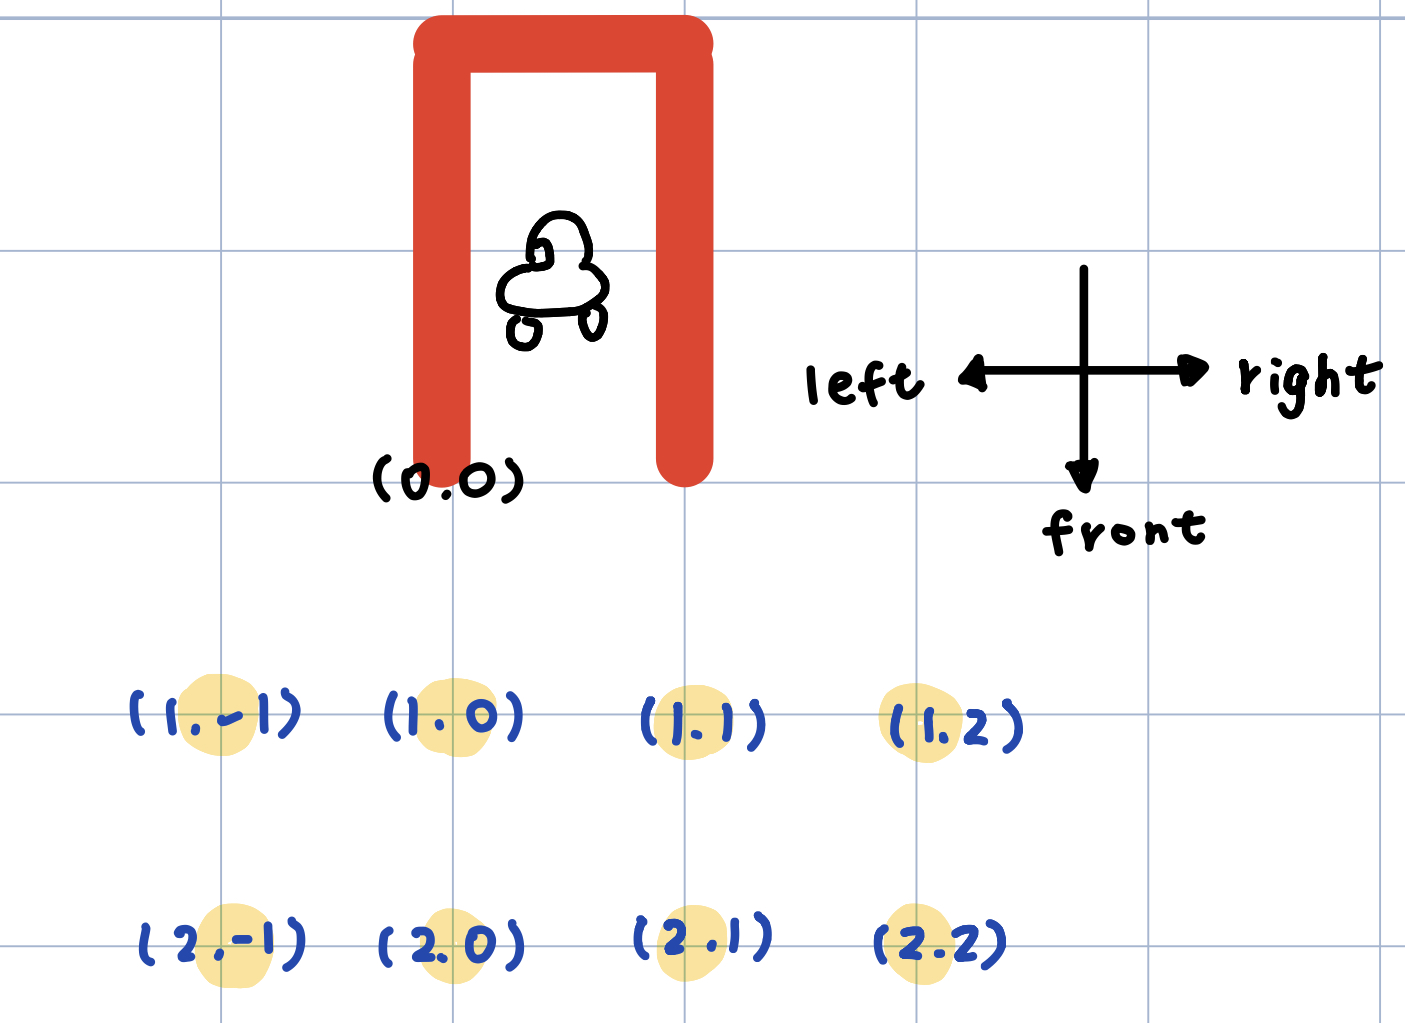 left
right
(0.0)
front
(1.-1)
(1.0)
(1.1)
(1.2)
(2.-1)
(2.0)
(2.1)
(2.2)